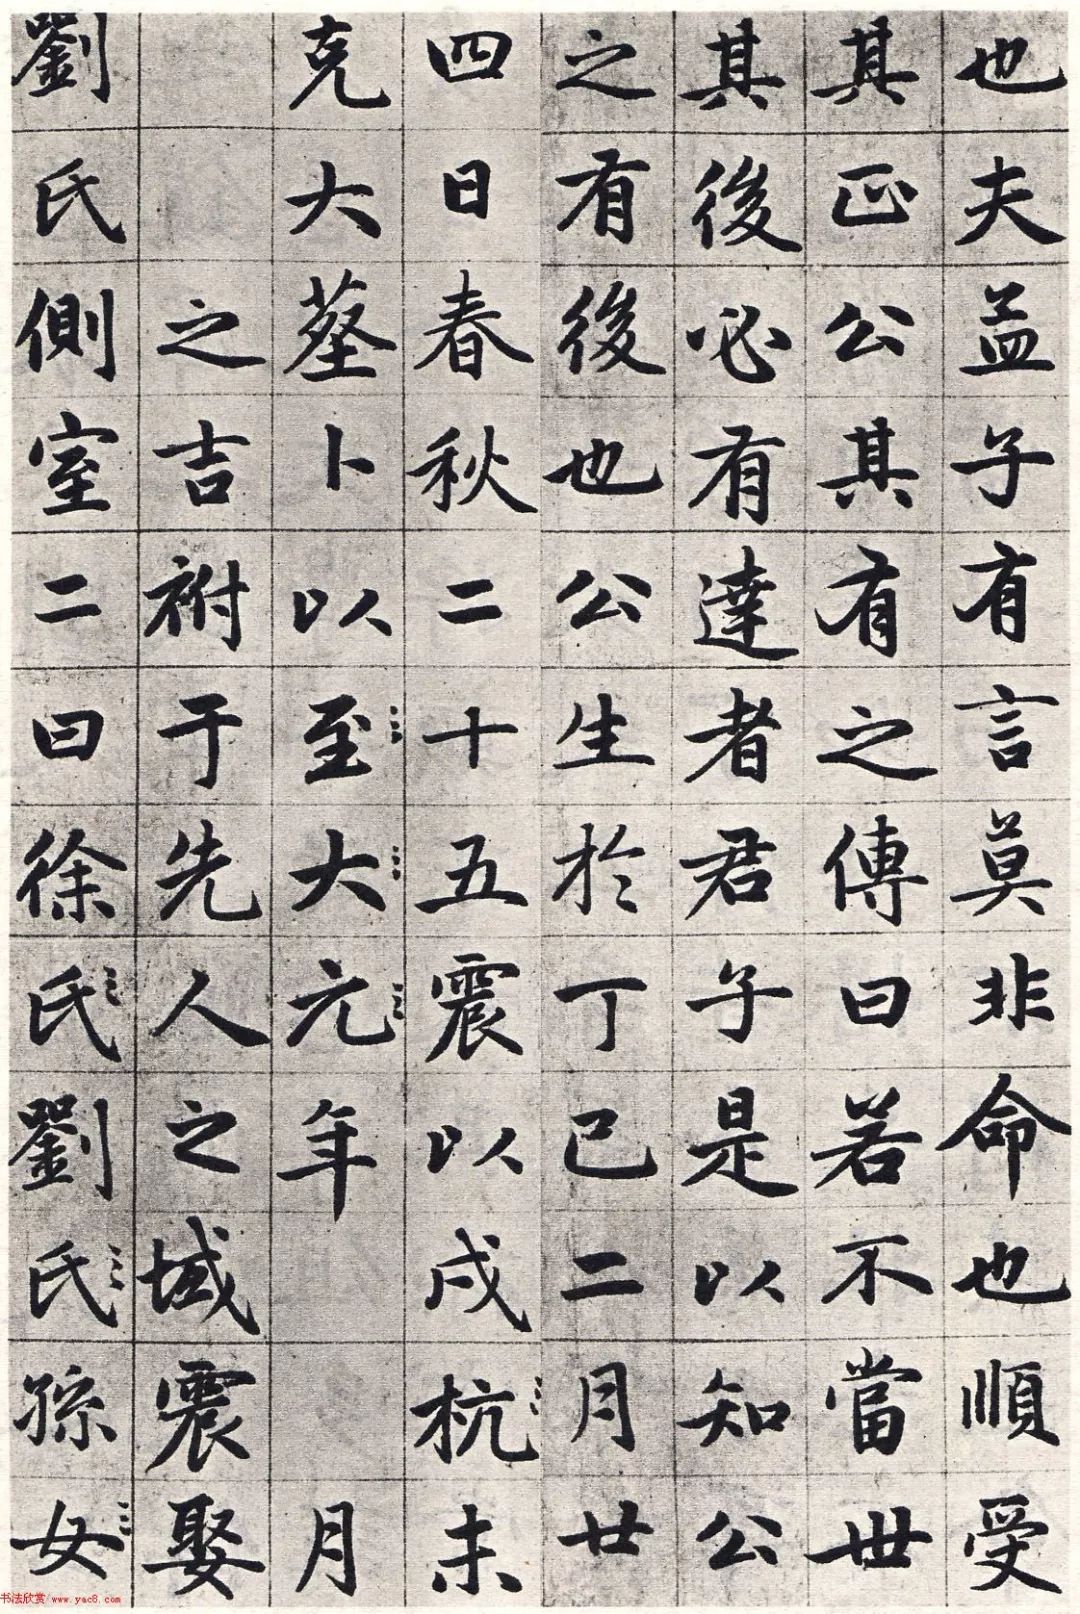 也夫孟子有言莫非命也順受
其正公其有之傳曰若不當世
其後必有達者君子是以知公
之有後也公生於丁巳二月廿
四日春秋二十五震以戍杭未
克大塟卜以至大元年　　月
　　之吉祔于先人之域震娶
劉氏側室二曰徐氏劉氏孫女
书法欣赏/www.yac8.com